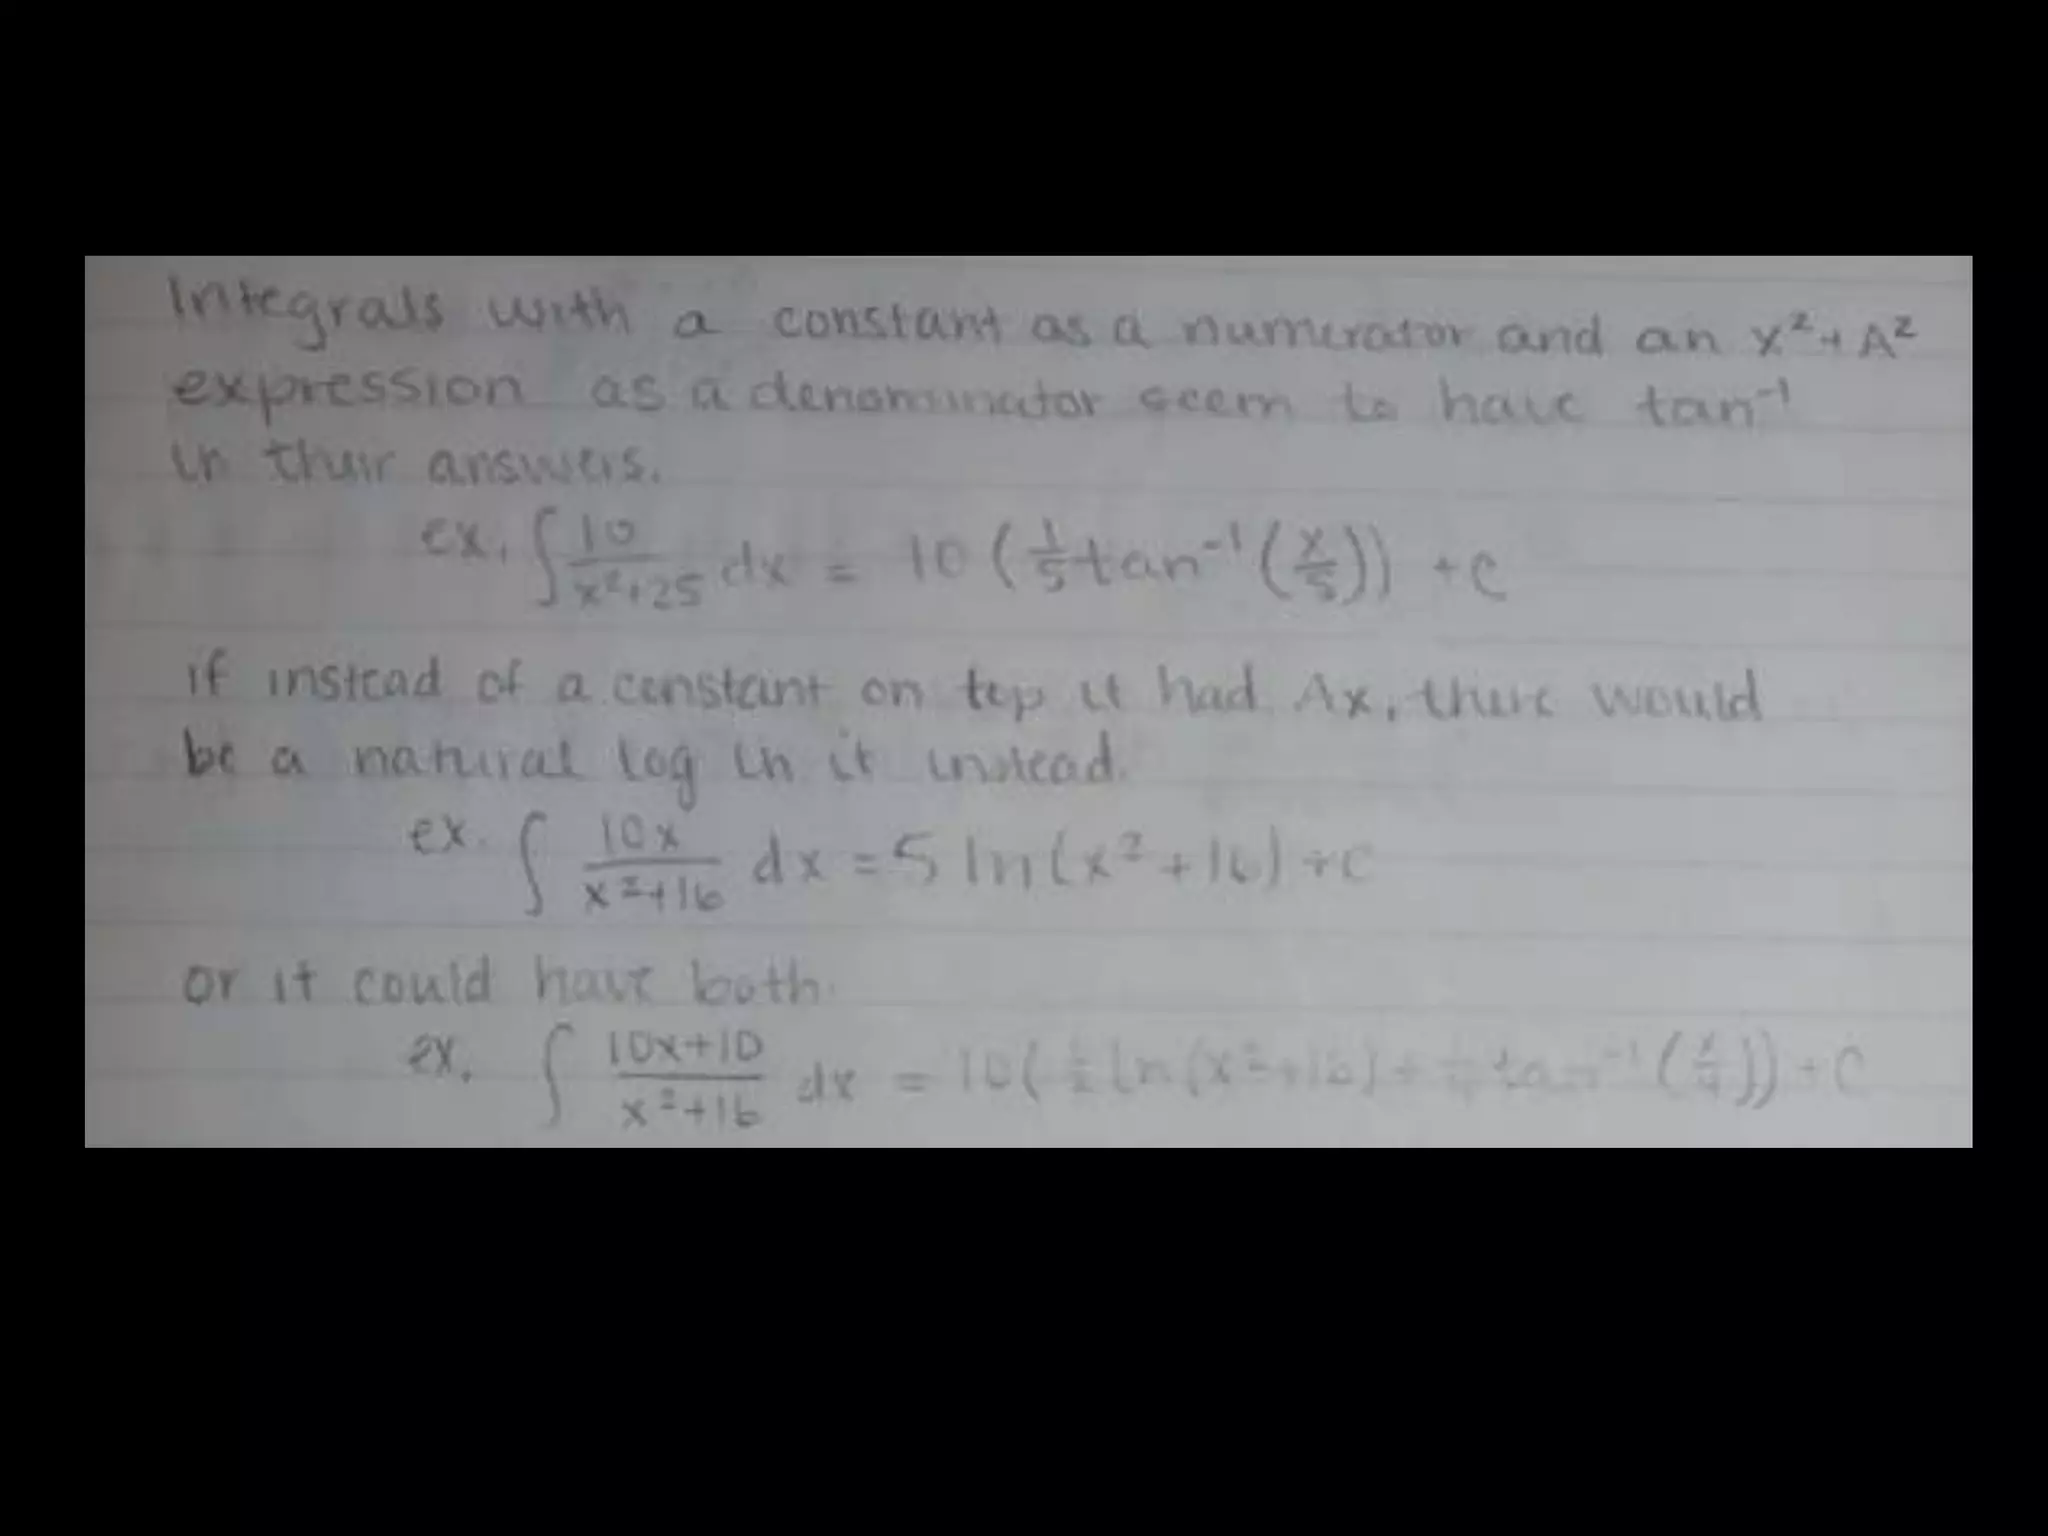 Integrals with a constant as a numerator and an x²+A²
expression as a denominator seem to have tan⁻¹
in their answers.
ex. ∫ 10/(x²+25) dx = 10 (1/5 tan⁻¹ (x/5)) + C
if instead of a constant on top it had Ax, there would
be a natural log in it instead.
ex. ∫ 10x/(x²+16) dx = 5 ln(x²+16) + C
or it could have both.
ex. ∫ (10x+10)/(x²+16) dx = 10( 1/2 ln(x²+16) + 1/4 tan⁻¹ (x/4)) + C